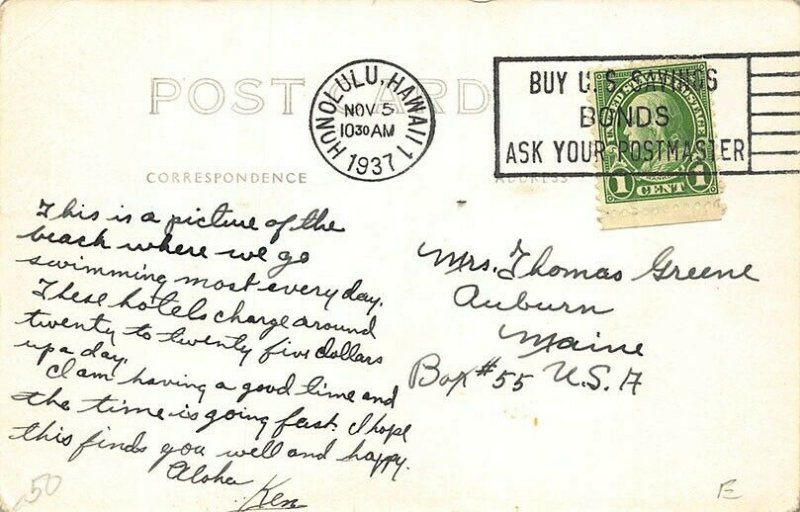 POST CARD
HONOLULU, HAWAII 1
NOV 5
10 30 AM
1937
BUY U.S. SAVINGS
BONDS
ASK YOUR POSTMASTER
UNITED STATES POSTAGE
FRANKLIN
1 CENT 1
CORRESPONDENCE
ADDRESS
This is a picture of the
beach where we go
swimming most every day.
These hotels charge around
twenty to twenty five dollars
up a day.
I am having a good time and
the time is going fast. I hope
this finds you well and happy.
Aloha
Ken
Mrs. Thomas Greene
Auburn
Maine
Box #55 U.S.A
50
E